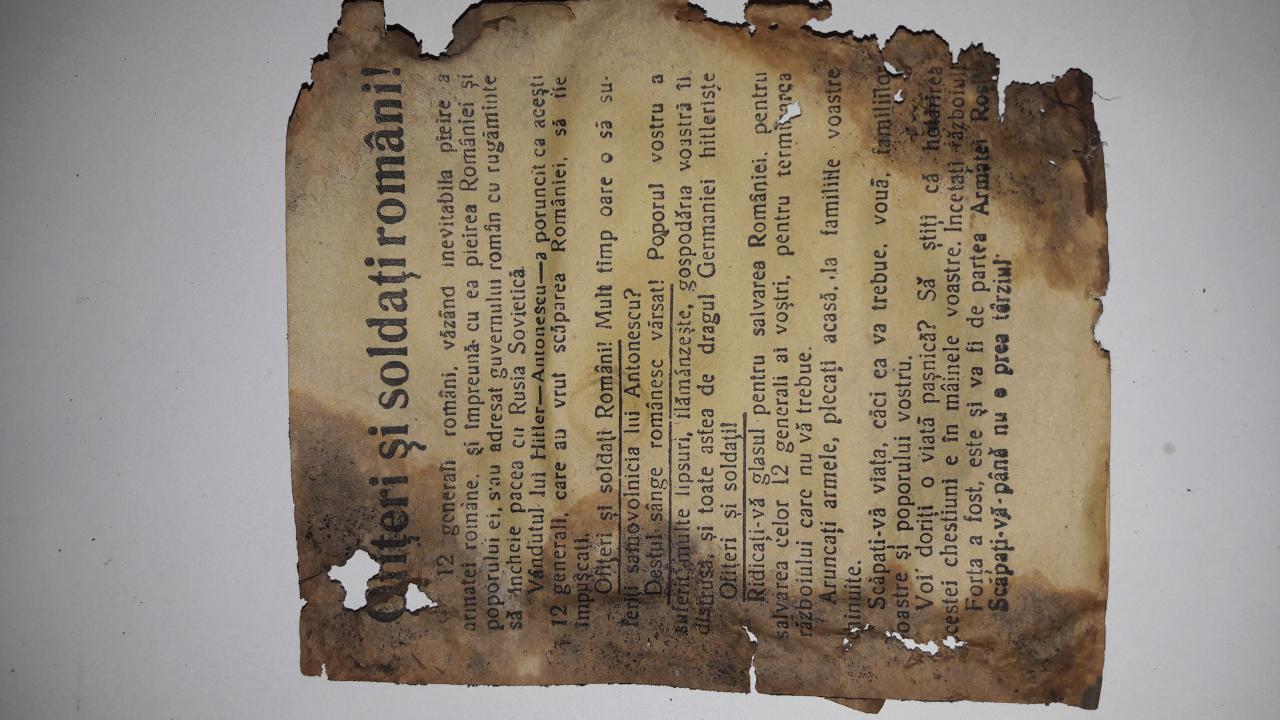 Ofițeri și soldați români!
12 generali români, văzând inevitabila pieire a
armatei române, și împreună cu ea pieirea României și
poporului ei, s'au adresat guvernului român cu rugăminte
să încheie pacea cu Rusia Sovietică.
Vândutul lui Hitler—Antonescu—a poruncit ca acești
12 generali, care au vrut scăparea României, să fie
împușcați.
Ofițeri și soldați Români! Mult timp oare o să su-
feriți samovolnicia lui Antonescu?
Destul sânge românesc vărsat! Poporul vostru a
suferit multe lipsuri, flămânzește, gospodăria voastră îi
distrusă și toate astea de dragul Germaniei hitleriste
Ofițeri și soldați!
Ridicați-vă glasul pentru salvarea României, pentru
salvarea celor 12 generali ai voștri, pentru terminarea
războiului care nu vă trebue.
Aruncați armele, plecați acasă, la familiile voastre
minuite.
Scăpați-vă viața, căci ea va trebue, vouă, familiilor
voastre și poporului vostru.
Voi doriți o viață pașnică? Să știți că hotărîrea
acestei chestiuni e în mâinele voastre. Încetați războiul
Forța a fost, este și va fi de partea Armatei Roșii
Scăpați-vă până nu e prea târziu!